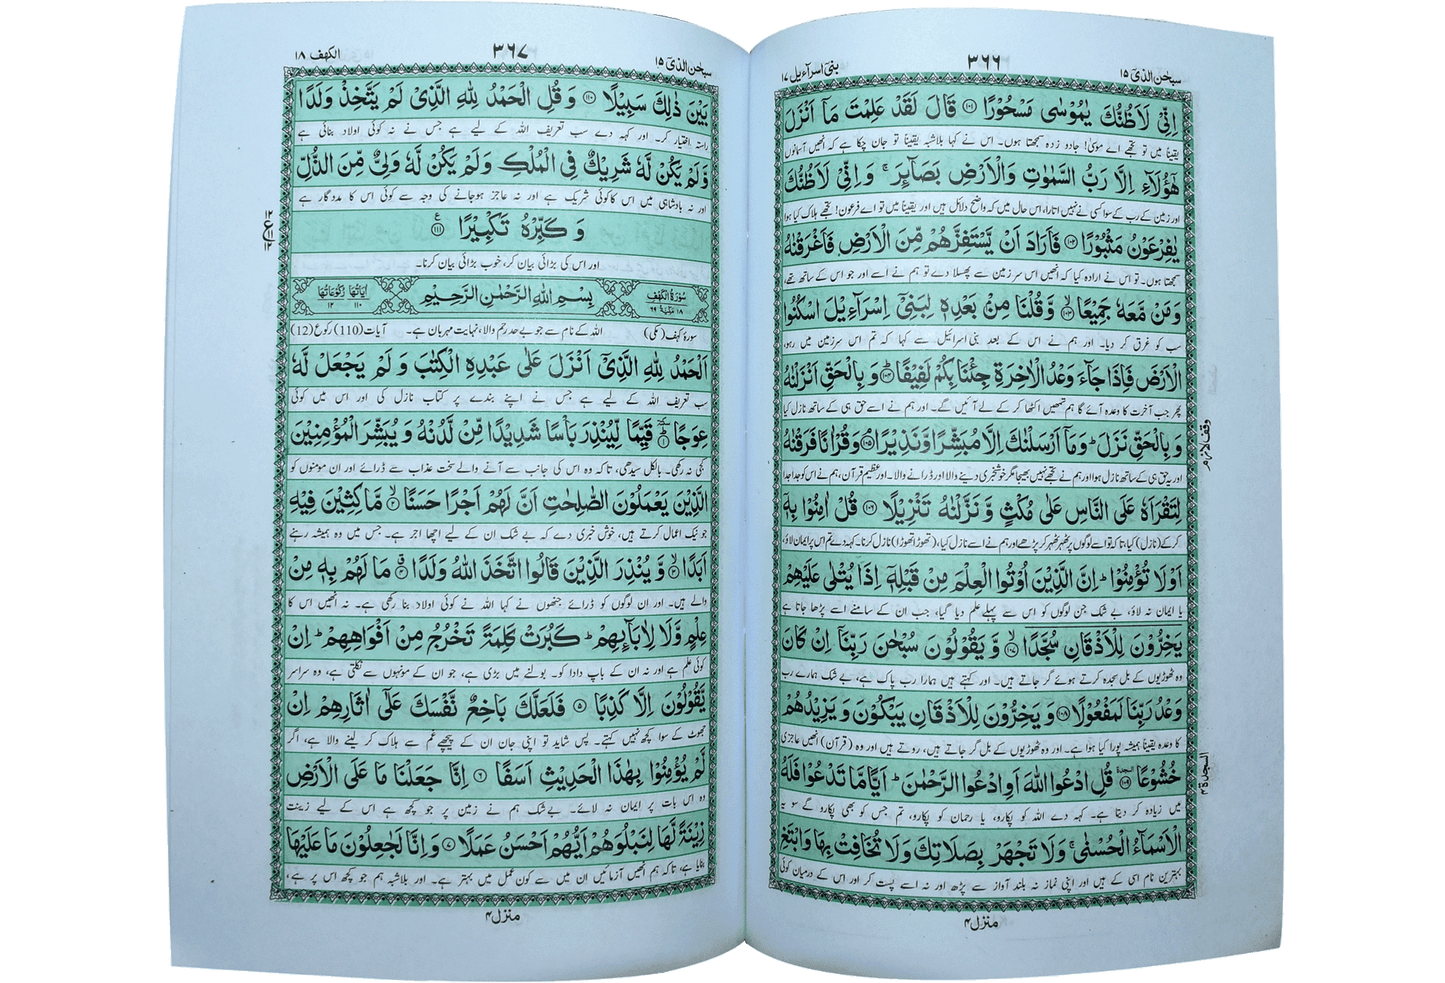 سبحن الذیٓ ۱۵
۳۶۶
بنیٓ اسرآءیل ۱۷
اِنِّیْ لَاَظُنُّكَ یٰمُوْسٰى مَسْحُوْرًا ۝۱۰۱ قَالَ لَقَدْ عَلِمْتَ مَاۤ اَنْزَلَ
یقیناً میں تو تجھے اے موسیٰ! جادو زدہ سمجھتا ہوں۔ اس نے کہا بلاشبہ یقیناً تو جان چکا ہے کہ انھیں آسمانوں
هٰۤؤُلَآءِ اِلَّا رَبُّ السَّمٰوٰتِ وَالْاَرْضِ بَصَآئِرَ ۚ وَاِنِّیْ لَاَظُنُّكَ
اور زمین کے رب کے سوا کسی نے نہیں اتارا، اس حال میں کہ واضح دلائل ہیں اور یقیناً میں تو اے فرعون! تجھے ہلاک کیا ہوا
یٰفِرْعَوْنُ مَثْبُوْرًا ۝۱۰۲ فَاَرَادَ اَنْ یَّسْتَفِزَّهُمْ مِّنَ الْاَرْضِ فَاَغْرَقْنٰهُ
سمجھتا ہوں۔ تو اس نے ارادہ کیا کہ انھیں اس سرزمین سے پھسلا دے تو ہم نے اسے اور جو اس کے ساتھ تھے،
وَمَنْ مَّعَهٗ جَمِیْعًا ۝۱۰۳ۙ وَّقُلْنَا مِنْۢ بَعْدِهٖ لِبَنِیْۤ اِسْرَآءِیْلَ اسْكُنُوا
سب کو غرق کر دیا۔ اور ہم نے اس کے بعد بنی اسرائیل سے کہا کہ تم اس سرزمین میں رہو،
الْاَرْضَ فَاِذَا جَآءَ وَعْدُ الْاٰخِرَةِ جِئْنَا بِكُمْ لَفِیْفًا ۝۱۰۴ؕ وَ بِالْحَقِّ اَنْزَلْنٰهُ
پھر جب آخرت کا وعدہ آئے گا ہم تمھیں اکٹھا کر کے لے آئیں گے۔ اور ہم نے اسے حق ہی کے ساتھ نازل کیا
وَ بِالْحَقِّ نَزَلَ ؕ وَمَاۤ اَرْسَلْنٰكَ اِلَّا مُبَشِّرًا وَّنَذِیْرًا ۝۱۰۵ۘ وَقُرْاٰنًا فَرَقْنٰهُ
اور یہ حق ہی کے ساتھ نازل ہوا اور ہم نے تجھے نہیں بھیجا مگر خوشخبری دینے والا اور ڈرانے والا۔ اور عظیم قرآن، ہم نے اس کو جدا جدا
لِتَقْرَاَهٗ عَلَى النَّاسِ عَلٰى مُكْثٍ وَّ نَزَّلْنٰهُ تَنْزِیْلًا ۝۱۰۶ قُلْ اٰمِنُوْا بِهٖۤ
کر کے (نازل) کیا، تاکہ تو اسے لوگوں پر ٹھہر ٹھہر کر پڑھے اور ہم نے اسے نازل کیا، (تھوڑا تھوڑا) نازل کرنا۔ کہہ دے تم اس پر ایمان لاؤ،
اَوْ لَا تُؤْمِنُوْا ؕ اِنَّ الَّذِیْنَ اُوْتُوا الْعِلْمَ مِنْ قَبْلِهٖۤ اِذَا یُتْلٰى عَلَیْهِمْ
یا ایمان نہ لاؤ، بے شک جن لوگوں کو اس سے پہلے علم دیا گیا، جب ان کے سامنے اسے پڑھا جاتا ہے
یَخِرُّوْنَ لِلْاَذْقَانِ سُجَّدًا ۝۱۰۷ۙ وَّ یَقُوْلُوْنَ سُبْحٰنَ رَبِّنَاۤ اِنْ كَانَ
وہ ٹھوڑیوں کے بل سجدہ کرتے ہوئے گر جاتے ہیں۔ اور کہتے ہیں ہمارا رب پاک ہے، بے شک ہمارے رب
وَعْدُ رَبِّنَا لَمَفْعُوْلًا ۝۱۰۸ وَ یَخِرُّوْنَ لِلْاَذْقَانِ یَبْكُوْنَ وَ یَزِیْدُهُمْ
کا وعدہ یقیناً ہمیشہ پورا کیا ہوا ہے۔ اور وہ ٹھوڑیوں کے بل گر جاتے ہیں، روتے ہیں اور وہ (قرآن) انھیں عاجزی
خُشُوْعًا ۝۱۰۹ السجدة قُلِ ادْعُوا اللّٰهَ اَوِ ادْعُوا الرَّحْمٰنَ ؕ اَیًّا مَّا تَدْعُوْا فَلَهُ
میں زیادہ کر دیتا ہے۔ کہہ دے اللہ کو پکارو، یا رحمان کو پکارو، تم جس کو بھی پکارو گے سو یہ
الْاَسْمَآءُ الْحُسْنٰى ۚ وَلَا تَجْهَرْ بِصَلَاتِكَ وَلَا تُخَافِتْ بِهَا وَابْتَغِ
بہترین نام اسی کے ہیں اور اپنی نماز نہ بلند آواز سے پڑھ اور نہ اسے پست کر اور اس کے درمیان کوئی
وقف لازم
السجدة ۴
منزل ۴
سبحن الذیٓ ۱۵
۳۶۷
الکهف ۱۸
بَیْنَ ذٰلِكَ سَبِیْلًا ۝۱۱۰ وَ قُلِ الْحَمْدُ لِلّٰهِ الَّذِیْ لَمْ یَتَّخِذْ وَلَدًا
راستہ اختیار کر۔ اور کہہ دے سب تعریف اللہ کے لیے ہے جس نے نہ کوئی اولاد بنائی ہے
وَّلَمْ یَكُنْ لَّهٗ شَرِیْكٌ فِی الْمُلْكِ وَلَمْ یَكُنْ لَّهٗ وَلِیٌّ مِّنَ الذُّلِّ
اور نہ بادشاہی میں اس کا کوئی شریک ہے اور نہ عاجز ہوجانے کی وجہ سے کوئی اس کا مددگار ہے
وَ كَبِّرْهُ تَكْبِیْرًا ۝۱۱۱ع
اور اس کی بڑائی بیان کر، خوب بڑائی بیان کرنا۔
سُوْرَةُ الْكَهْفِ
بِسْمِ اللّٰهِ الرَّحْمٰنِ الرَّحِیْمِ
اٰیَاتُهَا ۱۱۰ رُكُوْعَاتُهَا ۱۲
۱۸ مَكِّیَّةٌ ۶۹
سورۂ کہف (مکی) اللہ کے نام سے جو بے حد رحم والا، نہایت مہربان ہے۔ آیات (110) رکوع (12)
اَلْحَمْدُ لِلّٰهِ الَّذِیْۤ اَنْزَلَ عَلٰى عَبْدِهِ الْكِتٰبَ وَ لَمْ یَجْعَلْ لَّهٗ
سب تعریف اللہ کے لیے ہے جس نے اپنے بندے پر کتاب نازل کی اور اس میں کوئی
عِوَجًا ۝۱ؕٚ قَیِّمًا لِّیُنْذِرَ بَاْسًا شَدِیْدًا مِّنْ لَّدُنْهُ وَ یُبَشِّرَ الْمُؤْمِنِیْنَ
کجی نہ رکھی۔ بالکل سیدھی، تاکہ وہ اس کی جانب سے آنے والے سخت عذاب سے ڈرائے اور ان مومنوں کو
الَّذِیْنَ یَعْمَلُوْنَ الصّٰلِحٰتِ اَنَّ لَهُمْ اَجْرًا حَسَنًا ۝۲ۙ مَّاكِثِیْنَ فِیْهِ
جو نیک اعمال کرتے ہیں، خوش خبری دے کہ بے شک ان کے لیے اچھا اجر ہے۔ جس میں وہ ہمیشہ رہنے
اَبَدًا ۝۳ۙ وَّ یُنْذِرَ الَّذِیْنَ قَالُوا اتَّخَذَ اللّٰهُ وَلَدًا ۝۴ۗ مَا لَهُمْ بِهٖ مِنْ
والے ہیں۔ اور ان لوگوں کو ڈرائے جنھوں نے کہا اللہ نے کوئی اولاد بنا رکھی ہے۔ نہ انھیں اس کا
عِلْمٍ وَّلَا لِاٰبَآئِهِمْ ؕ كَبُرَتْ كَلِمَةً تَخْرُجُ مِنْ اَفْوَاهِهِمْ ؕ اِنْ
کوئی علم ہے اور نہ ان کے باپ دادا کو۔ بولنے میں بڑی ہے، جو ان کے مونہوں سے نکلتی ہے، وہ سراسر
یَّقُوْلُوْنَ اِلَّا كَذِبًا ۝۵ فَلَعَلَّكَ بَاخِعٌ نَّفْسَكَ عَلٰۤى اٰثَارِهِمْ اِنْ
جھوٹ کے سوا کچھ نہیں کہتے۔ پس شاید تو اپنی جان ان کے پیچھے غم سے ہلاک کر لینے والا ہے، اگر
لَّمْ یُؤْمِنُوْا بِهٰذَا الْحَدِیْثِ اَسَفًا ۝۶ اِنَّا جَعَلْنَا مَا عَلَى الْاَرْضِ
وہ اس بات پر ایمان نہ لائے۔ بے شک ہم نے زمین پر جو کچھ ہے اس کے لیے زینت
زِیْنَةً لَّهَا لِنَبْلُوَهُمْ اَیُّهُمْ اَحْسَنُ عَمَلًا ۝۷ وَ اِنَّا لَجٰعِلُوْنَ مَا عَلَیْهَا
بنایا ہے، تاکہ ہم انھیں آزمائیں ان میں سے کون عمل میں بہتر ہے۔ اور بلاشبہ ہم جو کچھ اس پر ہے،
منزل ۴